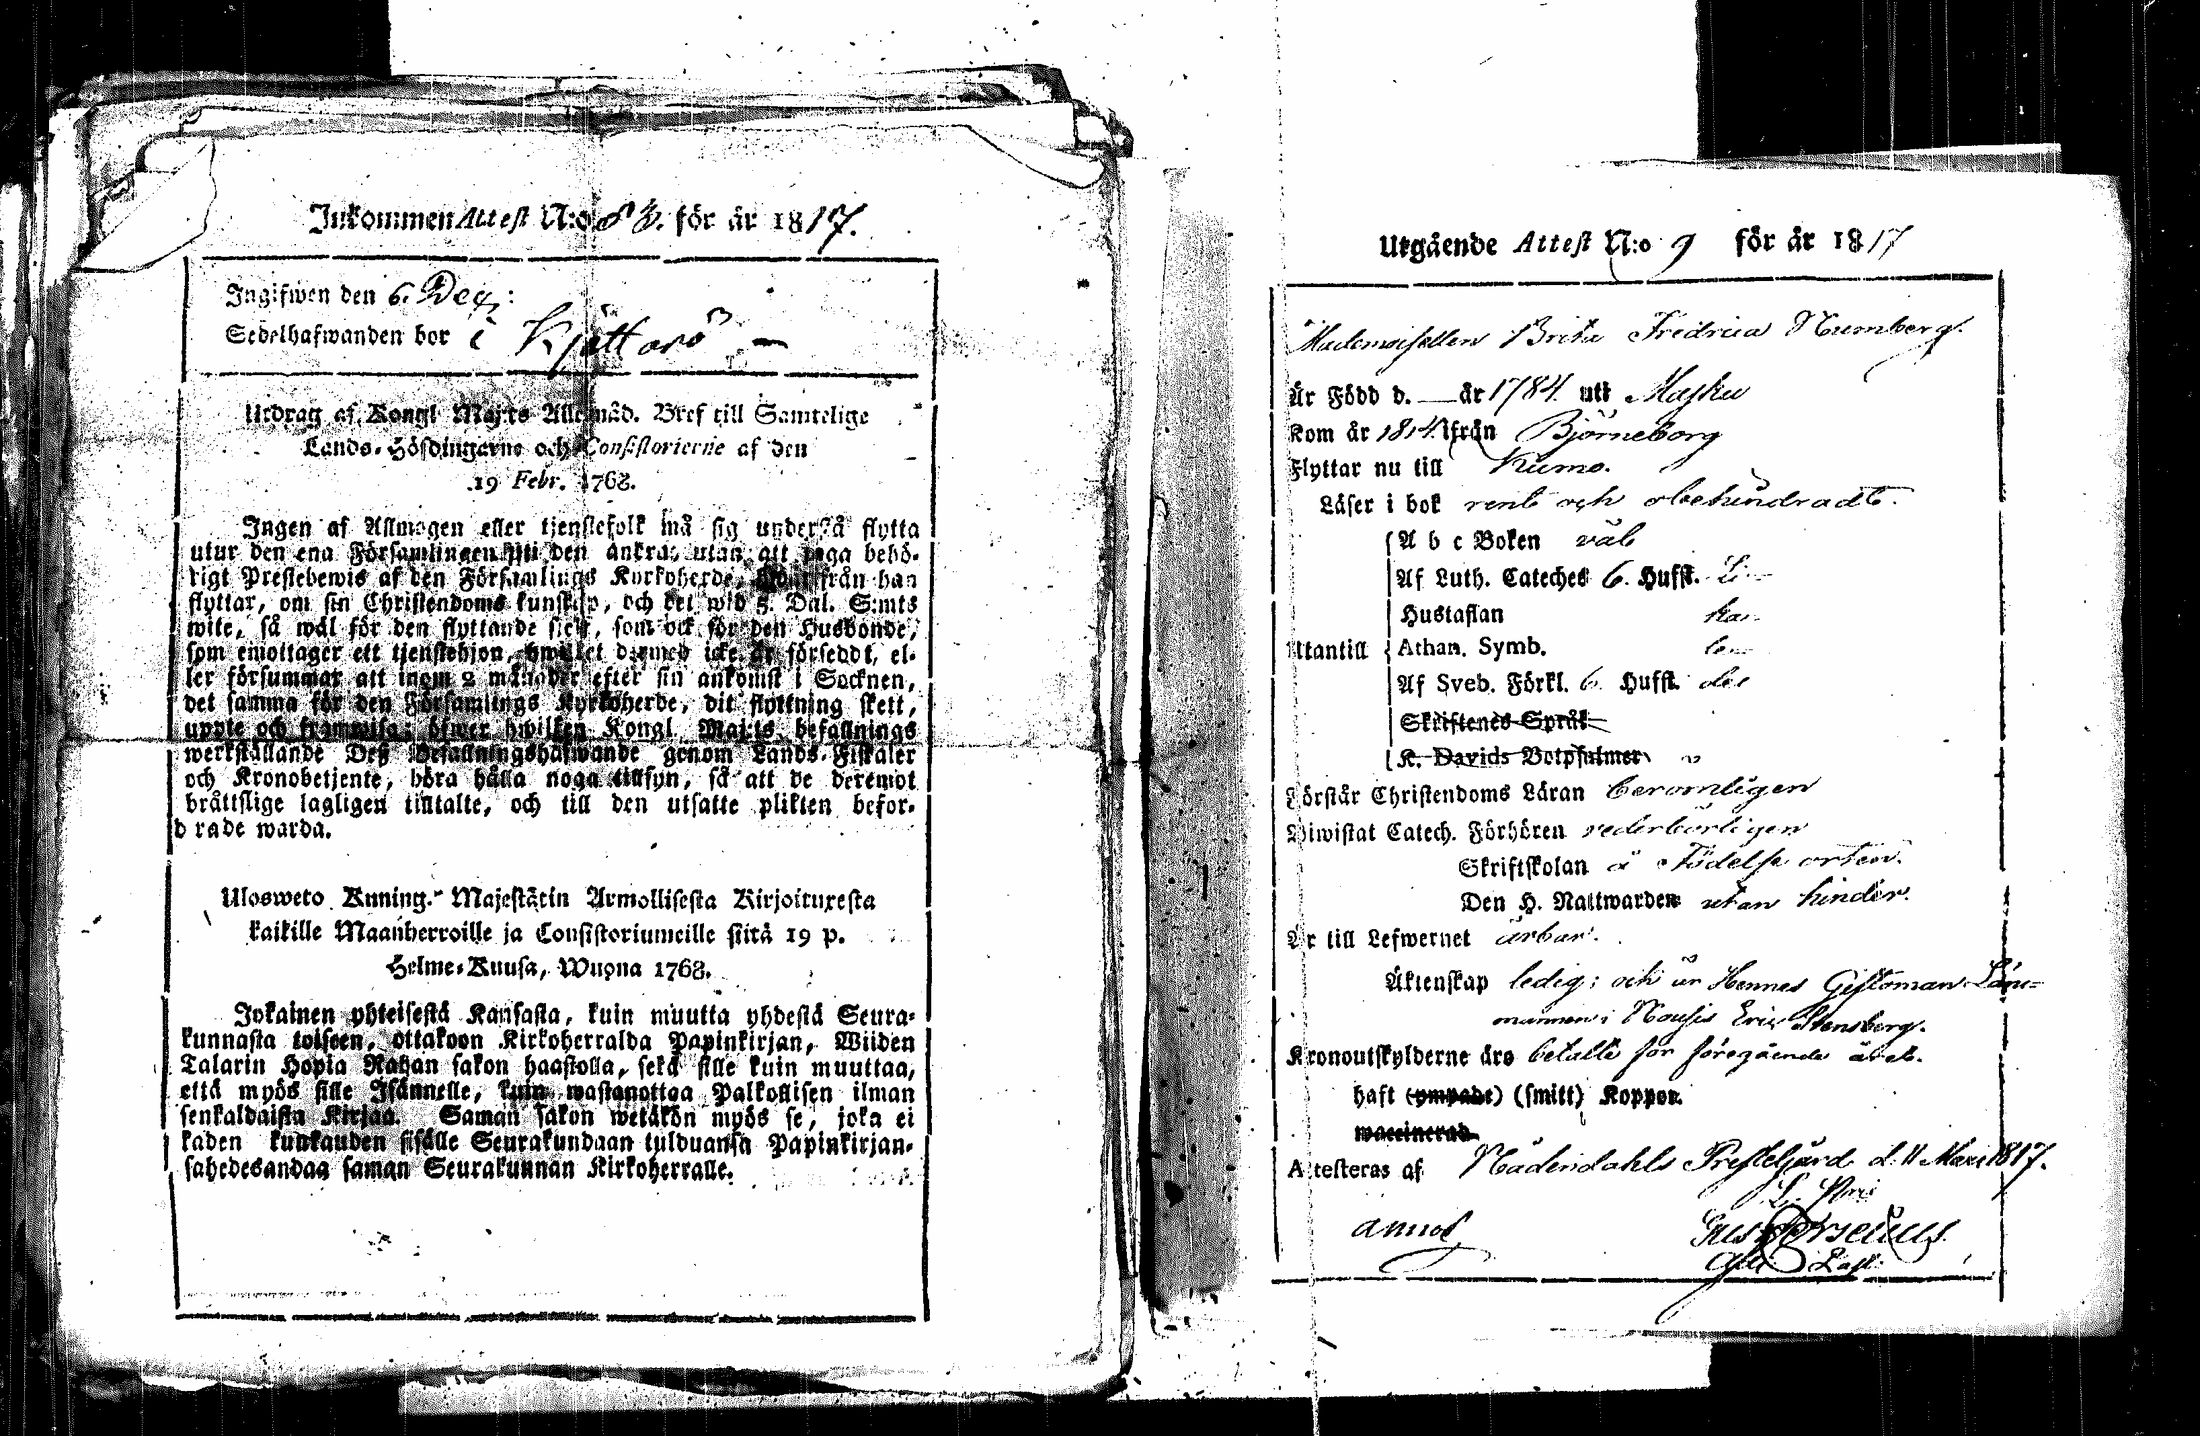 Inkommen Attest N:o 83. för år 1817.
Ingifwen den 6. Dec:
Sedelhafwanden bor i Kjättarö
Utdrag af Kongl Maj:ts Allernåd. Bref till Samtelige
Lands-Höfdingarne och Consistorierne af den
19 Febr. 1768.
Ingen af Allmogen eller tjenstefolk må sig understå flytta
utur den ena Församlingen till den andra, utan att taga behö-
rigt Prestebewis af den Församlings Kyrkoherde, hwarifrån han
flyttar, om sin Christendoms kunskap, och det wid 5. Dal. S:mts
wite, så wäl för den flyttande sjelf, som ock för den Husbonde,
som emottager ett tjenstehjon, hwilket dermed icke är försedt, el-
ler försummar att inom 2 månader efter sin ankomst i Socknen,
det samma för den Församlings Kyrkoherde, dit flyttning skett,
uppte och framwisa; öfwer hwilken Kongl Maj:ts befallnings
werkställande Deß Befallningshafwande genom Lands-Fiskaler
och Kronobetjente, böra hålla noga tillsyn, så att de deremot
bråttslige lagligen tilltalte, och till den utsatte plikten befor-
drade warda.
Ulosweto Kuning. Majestätin Armollisesta Kirjoituxesta
kaikille Maanherroille ja Consistoriumeille siitä 19 p.
Helme-Kuusa, Wuona 1768.
Jokainen yhteisestä Kansasta, kuin muutta yhdestä Seura-
kunnasta toiseen, ottakoon Kirkoherralda Papinkirjan, Wiiden
Talarin Hopia Rahan sakon haastolla, sekä sille kuin muuttaa,
että myös sille Isännelle, kuin wastanottaa Palkollisen ilman
senkaldaista Kirjaa. Saman sakon wetäkön myös se, joka ei
kaden kuukauden sisälle Seurakundaan tulduansa Papinkirjan-
sahedesandaa saman Seurakunnan Kirkoherralle.
Utgående Attest N:o 9 för år 1817
Mademoisellen Brita Fredrica Numberg.
Är Född d. — år 1784. utt Masku
Kom år 1814. ifrån Björneborg
Flyttar nu till Kumo.
Läser i bok rent och obehindradt.
A b c Boken väl
Af Luth. Cateches 6. Hufst. Li
Hustaflan ka
Utantill Athan. Symb. le
Af Sveb. Förkl. 6. Hufst. des
Skriftenes Språk
K. Davids Botpsalmer
Förstår Christendoms Läran beromligen
Biwistat Catech. Förhören vederbörligen
Skriftskolan å Födelse orten.
Den H. Nattwarden utan hinder.
Är till Lefwernet ärbar.
Äktenskap ledig; och är Hennes Giftoman Län-
mannen i Nousis Eric Stensberg.
Kronoutskylderne äro betalte för föregående året.
haft (ympade) (smitt) Koppor.
waccinerad.
Attesteras af Nådendahls Prestegård d. 11 Mars 1817.
annot